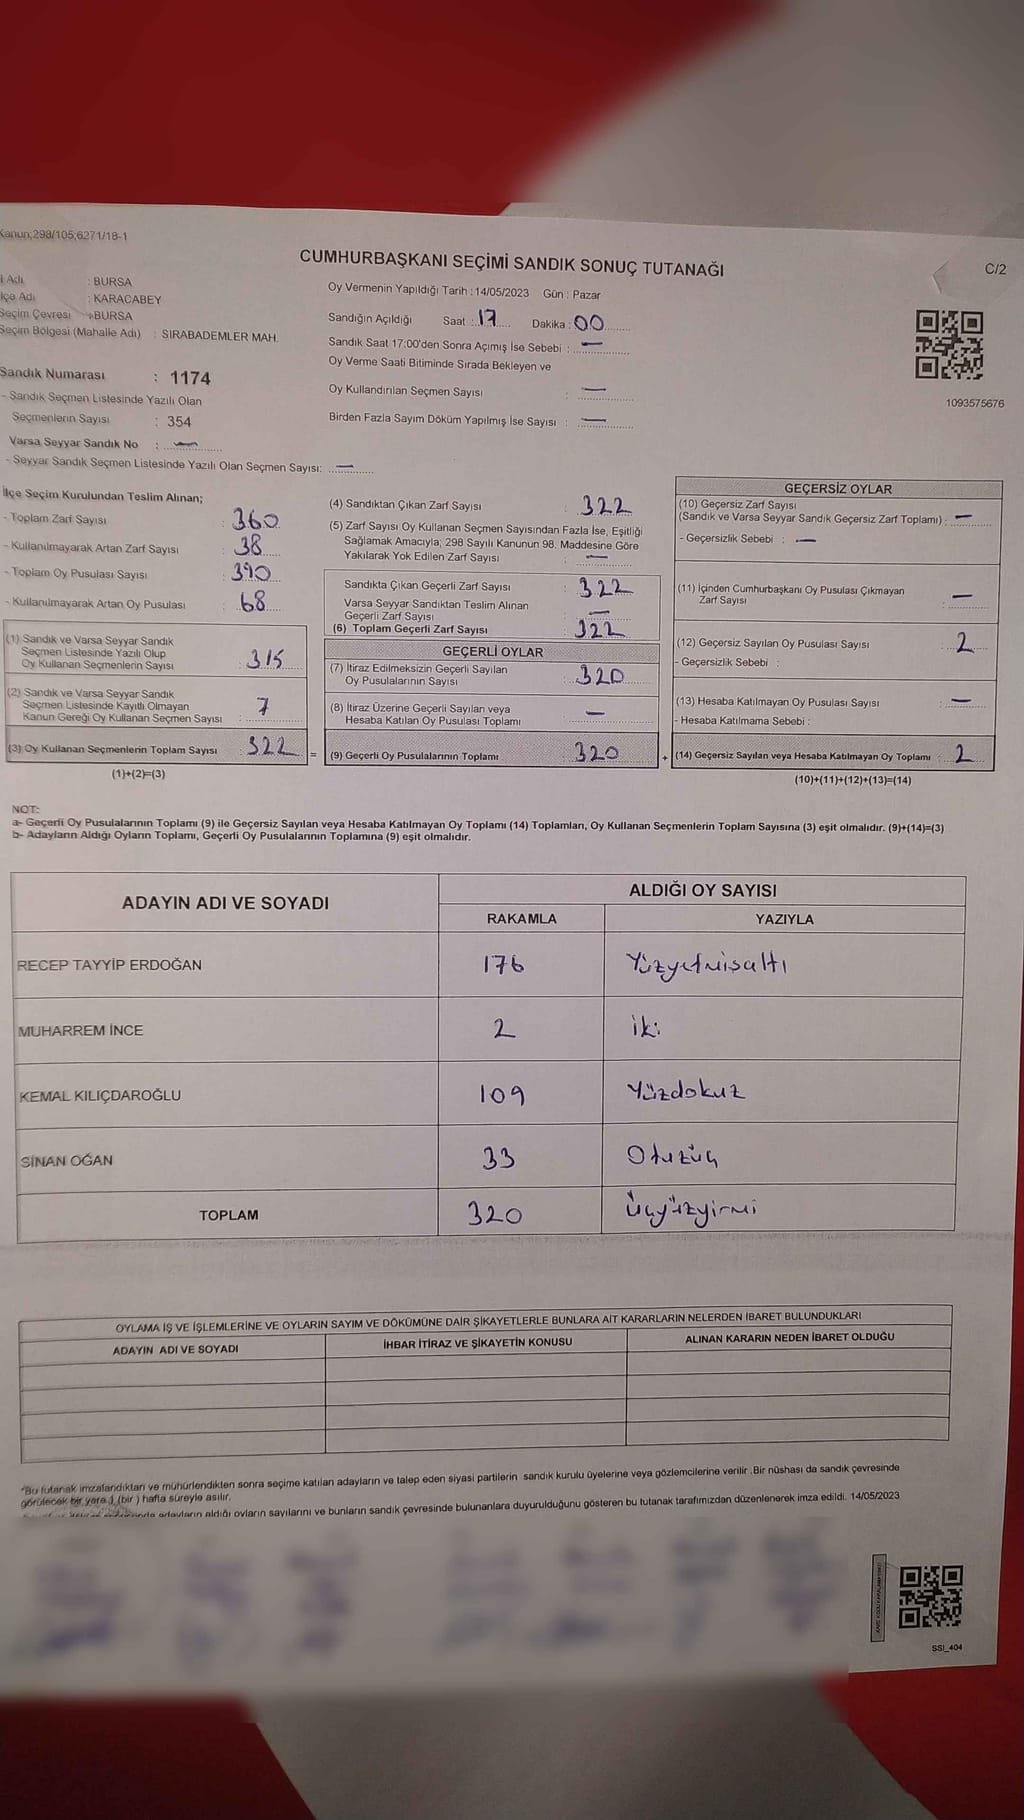 Kanun;298/105;6271/18-1
CUMHURBAŞKANI SEÇİMİ SANDIK SONUÇ TUTANAĞI
C/2
Adı : BURSA
İlçe Adı : KARACABEY
Seçim Çevresi : BURSA
Seçim Bölgesi (Mahalle Adı) : SIRABADEMLER MAH.
Sandık Numarası : 1174
- Sandık Seçmen Listesinde Yazılı Olan
Seçmenlerin Sayısı : 354
Varsa Seyyar Sandık No : —
- Seyyar Sandık Seçmen Listesinde Yazılı Olan Seçmen Sayısı: —
Oy Vermenin Yapıldığı Tarih : 14/05/2023 Gün : Pazar
Sandığın Açıldığı Saat : 17 Dakika : 00
Sandık Saat 17:00'den Sonra Açımış İse Sebebi : —
Oy Verme Saati Bitiminde Sırada Bekleyen ve
Oy Kullandırılan Seçmen Sayısı : —
Birden Fazla Sayım Döküm Yapılmış İse Sayısı : —
1093575676
İlçe Seçim Kurulundan Teslim Alınan;
- Toplam Zarf Sayısı : 360
- Kullanılmayarak Artan Zarf Sayısı : 38
- Toplam Oy Pusulası Sayısı : 390
- Kullanılmayarak Artan Oy Pusulası : 68
(1) Sandık ve Varsa Seyyar Sandık
Seçmen Listesinde Yazılı Olup
Oy Kullanan Seçmenlerin Sayısı : 315
(2) Sandık ve Varsa Seyyar Sandık
Seçmen Listesinde Kayıtlı Olmayan
Kanun Gereği Oy Kullanan Seçmen Sayısı : 7
(3) Oy Kullanan Seçmenlerin Toplam Sayısı : 322 =
(1)+(2)=(3)
(4) Sandıktan Çıkan Zarf Sayısı : 322
(5) Zarf Sayısı Oy Kullanan Seçmen Sayısından Fazla İse, Eşitliği
Sağlamak Amacıyla; 298 Sayılı Kanunun 98. Maddesine Göre
Yakılarak Yok Edilen Zarf Sayısı : —
Sandıkta Çıkan Geçerli Zarf Sayısı : 322
Varsa Seyyar Sandıktan Teslim Alınan
Geçerli Zarf Sayısı : —
(6) Toplam Geçerli Zarf Sayısı : 322
GEÇERLİ OYLAR
(7) İtiraz Edilmeksizin Geçerli Sayılan
Oy Pusulalarının Sayısı : 320
(8) İtiraz Üzerine Geçerli Sayılan veya
Hesaba Katılan Oy Pusulası Toplamı : —
(9) Geçerli Oy Pusulalarının Toplamı : 320 +
GEÇERSİZ OYLAR
(10) Geçersiz Zarf Sayısı
(Sandık ve Varsa Seyyar Sandık Geçersiz Zarf Toplamı) : —
- Geçersizlik Sebebi : —
(11) İçinden Cumhurbaşkanı Oy Pusulası Çıkmayan
Zarf Sayısı : —
(12) Geçersiz Sayılan Oy Pusulası Sayısı : 2
- Geçersizlik Sebebi :
(13) Hesaba Katılmayan Oy Pusulası Sayısı : —
- Hesaba Katılmama Sebebi :
(14) Geçersiz Sayılan veya Hesaba Katılmayan Oy Toplamı : 2
(10)+(11)+(12)+(13)=(14)
NOT:
a- Geçerli Oy Pusulalarının Toplamı (9) ile Geçersiz Sayılan veya Hesaba Katılmayan Oy Toplamı (14) Toplamları, Oy Kullanan Seçmenlerin Toplam Sayısına (3) eşit olmalıdır. (9)+(14)=(3)
b- Adayların Aldığı Oyların Toplamı, Geçerli Oy Pusulalarının Toplamına (9) eşit olmalıdır.
ADAYIN ADI VE SOYADI ALDIĞI OY SAYISI
RAKAMLA YAZIYLA
RECEP TAYYİP ERDOĞAN 176 Yüzyetmişaltı
MUHARREM İNCE 2 iki
KEMAL KILIÇDAROĞLU 109 Yüzdokuz
SİNAN OĞAN 33 Otuzüç
TOPLAM 320 Üçyüzyirmi
OYLAMA İŞ VE İŞLEMLERİNE VE OYLARIN SAYIM VE DÖKÜMÜNE DAİR ŞİKAYETLERLE BUNLARA AİT KARARLARIN NELERDEN İBARET BULUNDUKLARI
ADAYIN ADI VE SOYADI İHBAR İTİRAZ VE ŞİKAYETİN KONUSU ALINAN KARARIN NEDEN İBARET OLDUĞU
*Bu tutanak imzalandıktan ve mühürlendikten sonra seçime katılan adayların ve talep eden siyasi partilerin sandık kurulu üyelerine veya gözlemcilerine verilir .Bir nüshası da sandık çevresinde
görülecek bir yere 1 (bir ) hafta süreyle asılır.
adayların aldığı oyların sayılarını ve bunların sandık çevresinde bulunanlara duyurulduğunu gösteren bu tutanak tarafımızdan düzenlenerek imza edildi. 14/05/2023
SSI_404